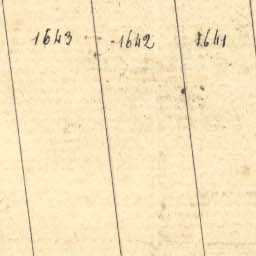 1643 1642 1641